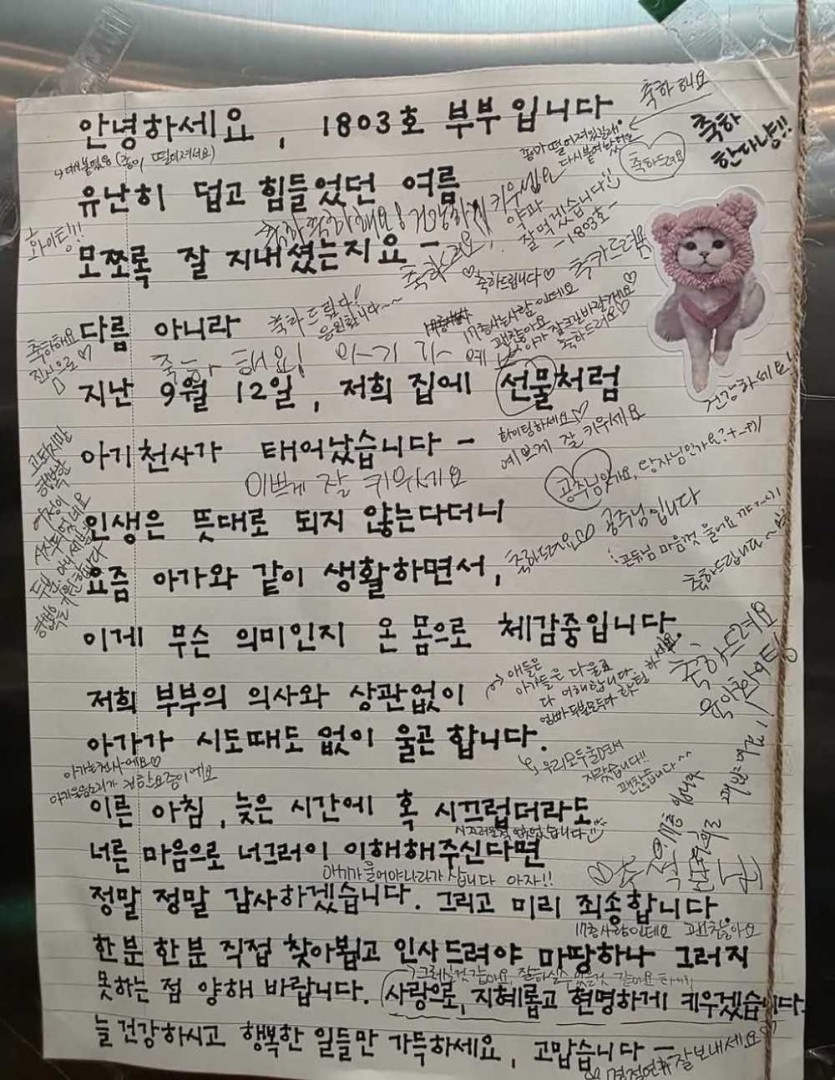 안녕하세요, 1803호 부부입니다
축하해요
축하
한다냥!!
축하드려요
다시 붙여 놨어요
유난히 덥고 힘들었던 여름
화이팅!!
축하축하해요! 건강하게 키우세요
약과
잘 먹겠습니다
-1803호-
모쪼록 잘 지내셨는지요 -
축하드려요!
♡축하드립니다♡
축카드려욤
다름 아니라
축하드립니다!
응원합니다~~
17층 사는 사람인데요
괜찮아요
축하드려요
축하해요
진심으로♡
축하해요!
지난 9월 12일, 저희 집에 선물처럼
건강하세요!
아기천사가 태어났습니다 -
화이팅하세요♡
예쁘게 잘 키우세요
이쁘게 잘 키우세요
공주님일까요, 왕자님인가요?
인생은 뜻대로 되지 않는다더니
공주님입니다
축하드려요♡♡
요즘 아가와 같이 생활하면서,
축하드립니다~
이게 무슨 의미인지 온 몸으로 체감중입니다
축하드려요
육아화이팅
저희 부부의 의사와 상관없이
애들은
아가들은 다 울료
다 이해합니다.
아가가 시도때도 없이 울곤 합니다.
우리 모두 울면서
자랐습니다!!
괜찮습니다^^
아가는 천사에요♡
아기울음소리가 귀한 요즘이에요
이른 아침, 늦은 시간에 혹 시끄럽더라도
너른 마음으로 너그러이 이해해주신다면
아기가 울어야 나라가 삽니다 아자!!
정말 정말 감사하겠습니다. 그리고 미리 죄송합니다
17층 사람인데요 괜찮아요
한분 한분 직접 찾아뵙고 인사드려야 마땅하나 그러지
못하는 점 양해 바랍니다. 사랑으로, 지혜롭고 현명하게 키우겠습니다.
늘 건강하시고 행복한 일들만 가득하세요, 고맙습니다 -
잘 보내세요